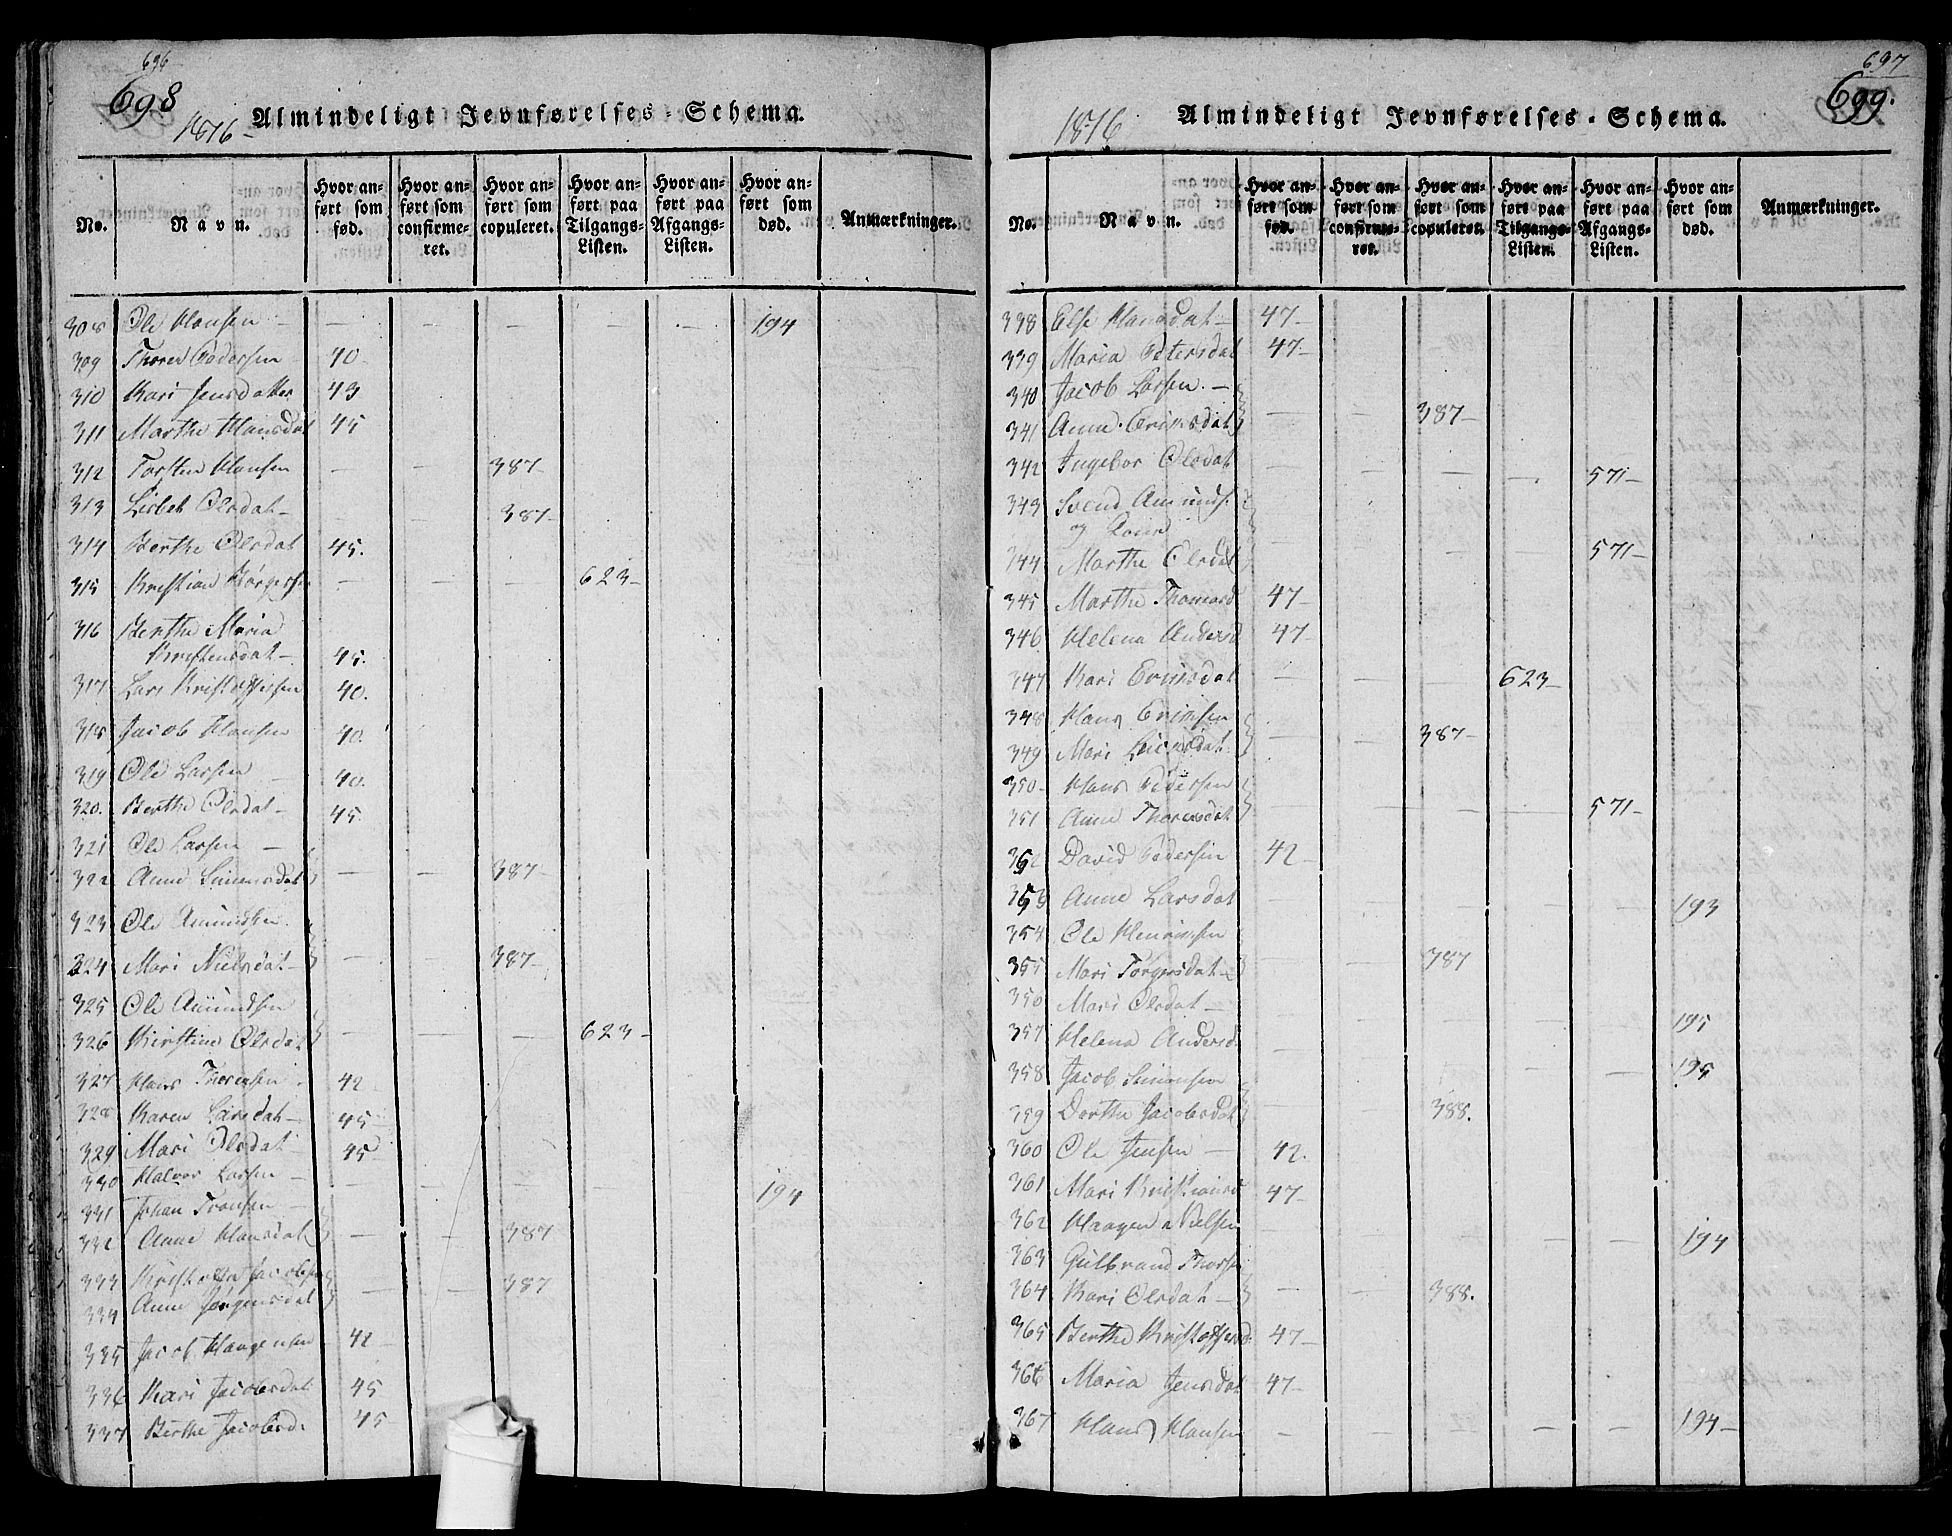 696
698
1816 -
Almindeligt Jevnførelses-Schema.
No.
Navn.
Hvor anført som fød.
Hvor anført som confirmeret.
Hvor anført som copuleret.
Hvor anført paa Tilgangs-Listen.
Hvor anført paa Afgangs-Listen.
Hvor anført som død.
Anmærkninger.
308 Ole Hansen - - - - - - 194
309 Thorer Pedersen 40-
310 Kari Jensdatter 43
311 Marthe Hansdat 45
312 Torsten Hansen - - 387-
313 Lisbet Olsdat- - - 387-
314 Berthe Olsdat 45.
315 Kristian - - - 623-
316 Berthe Maria
Kristensdat- 45.
317 Lars Kristoffersen 40.
318 Jacob Hansen 40.
319 Ole Larsen - 40.
320. Berthe Olsdat- 45.
321 Ole Larsen -
322 Anne Simensdat - - 387-
323 Ole Amundsen
324 Mari Nielsdat- - - 387-
325 Ole Amundsen
326 Kirstine Olsdat - - - 623-
327 Hans Thoresen 42
328 Karen Larsdat- 45-
329 Mari Olsdat- 45
330 Halvor Larsen - - - - - - 194
331 Johan Tronsen -
332 Anne Hansdat - - 387
333 Kristoffer Jacobsen 387
334 Anne Jørgensdat - -
335 Jacob Haagensen 42-
336 Kari Jacobsdat 45
337 Berthe Jacobsd. 45-
697
699.
1816
Almindeligt Jevnførelses-Schema.
No.
Navn.
Hvor anført som fød.
Hvor anført som confirmeret.
Hvor anført som copuleret.
Hvor anført paa Tilgangs-Listen.
Hvor anført paa Afgangs-Listen.
Hvor anført som død.
Anmærkninger.
338 Else Hansdat- 47-
339 Maria Petersdat 47-
340 Jacob Larsen. -
341 Anne Eriksdat - - 387-
342 Ingebor Olsdat - - - - 571-
343 Svend Amunds.
og Kone
344 Marthe Olsdat - - - - 571-
345 Marthe Thomasd 47-
346 Helena Andersd 47-
347 Kari Eriksdat - - - 623-
348 Hans Eriksen
349 Mari - - 387-
350- Hans Pedersen
351 Anne Thoresdat - - - - 571-
352 David Pedersen 42-
353 Anne Larsdat - - - - - 193
354 Ole Henriksen
355 Mari Torgersdat- - - 387
356 Mari Olsdat - - - - - - 195
357 Helena Andersd.
358 Jacob Simensen - - - - - 195
359 Dorthe Jacobsdat - - 388.
360 Ole Jensen - 42.
361 Mari Kristiansd 47-
362 Haagen Nielsen - - - - - 194
363 Gulbrand Thorsen
364 Kari Olsdat- - - 388.
365 Berthe Kristoffersd. 47-
366 Maria Jensdat 47-
367 Hans Hansen - - - - - 194-